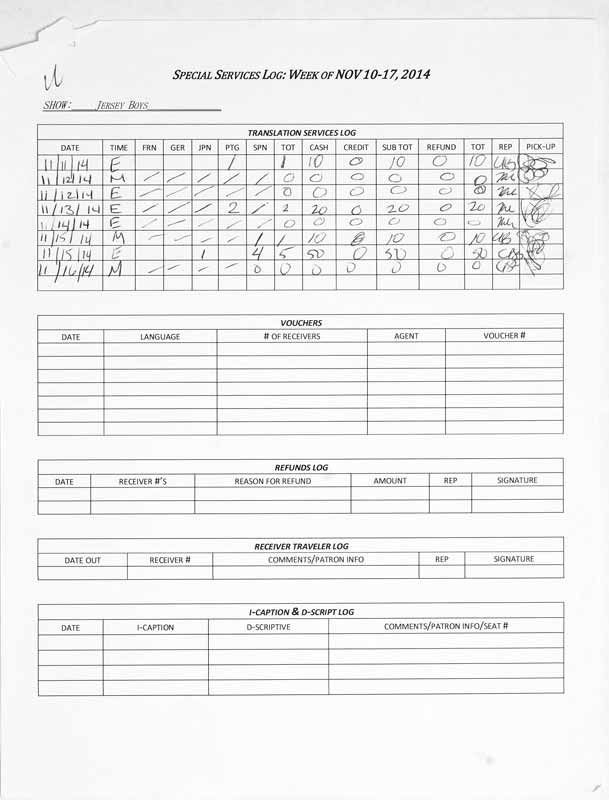 SPECIAL SERVICES LOG: WEEK OF NOV 10-17, 2014
SHOW: JERSEY BOYS
TRANSLATION SERVICES LOG
DATE TIME FRN GER JPN PTG SPN TOT CASH CREDIT SUB TOT REFUND TOT REP PICK-UP
11/11/14 E 1 1 10 0 10 0 10
11/12/14 M / / / / / 0 0 0 0 0 0
11/12/14 E / / / / / 0 0 0 0 0 0
11/13/14 E / / / 2 / 2 20 0 20 0 20
11/14/14 E / / / / / 0 0 0 0 0 0
11/15/14 M / / / / 1 1 10 0 10 0 10
11/15/14 E 1 4 5 50 0 50 0 50
11/16/14 M / / / / 0 0 0 0 0 0 0
VOUCHERS
DATE LANGUAGE # OF RECEIVERS AGENT VOUCHER #
REFUNDS LOG
DATE RECEIVER #'S REASON FOR REFUND AMOUNT REP SIGNATURE
RECEIVER TRAVELER LOG
DATE OUT RECEIVER # COMMENTS/PATRON INFO REP SIGNATURE
I-CAPTION & D-SCRIPT LOG
DATE I-CAPTION D-SCRIPTIVE COMMENTS/PATRON INFO/SEAT #